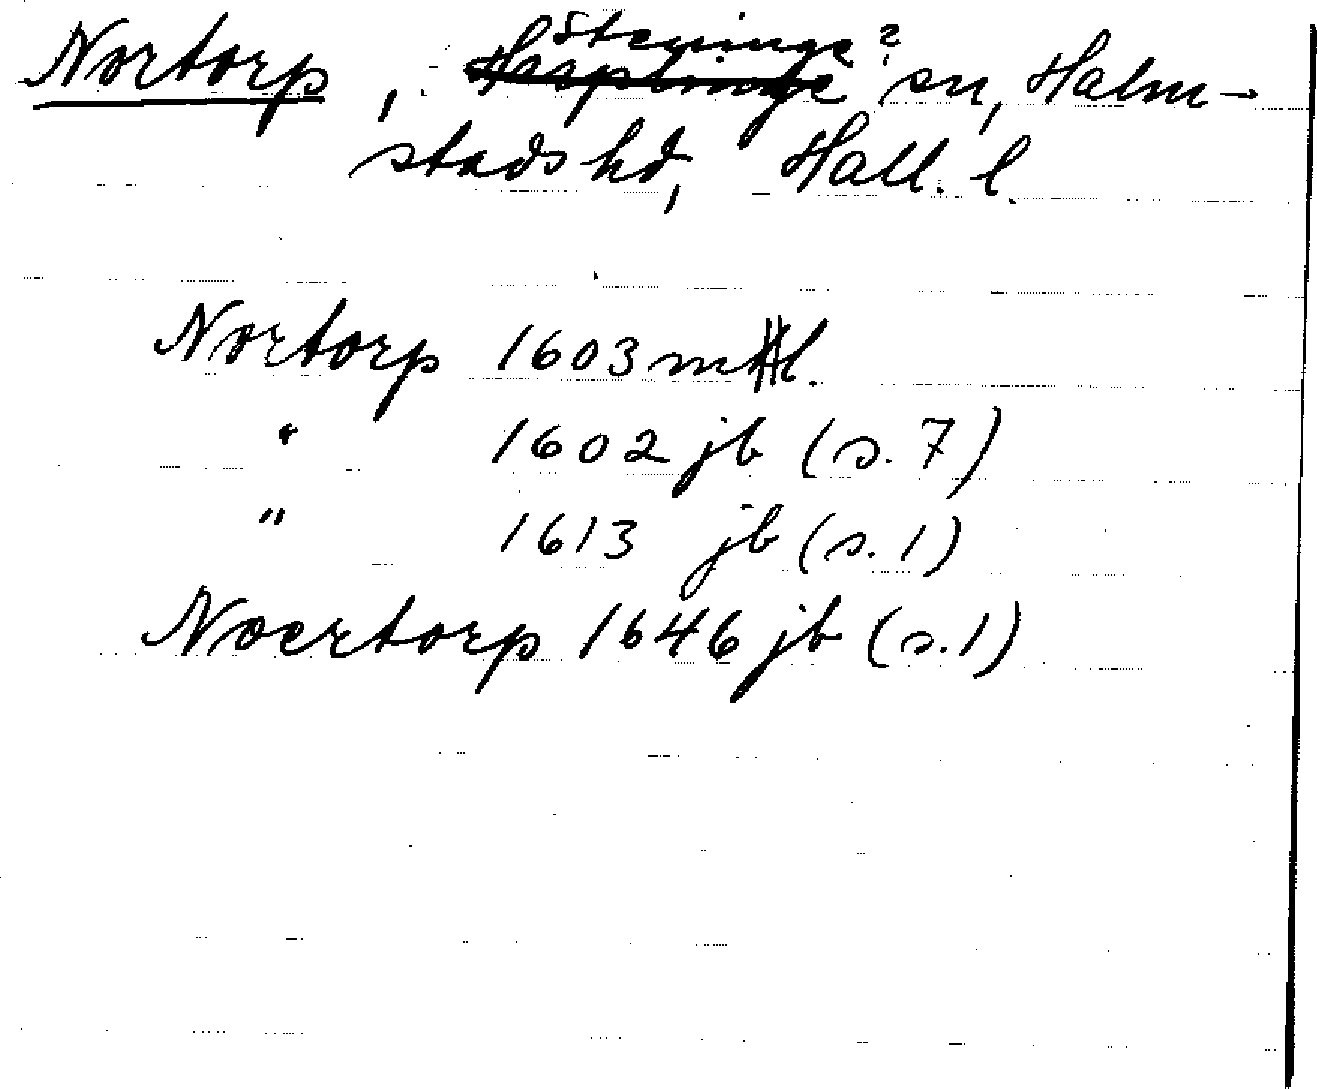 Steninge?
Nortorp, Harplinge sn, Halm-
stads hd, Hall. l.
Nortorp 1603 mtl.
" 1602 jb (s. 7)
" 1613 jb (s. 1)
Noertorp 1646 jb (s. 1)